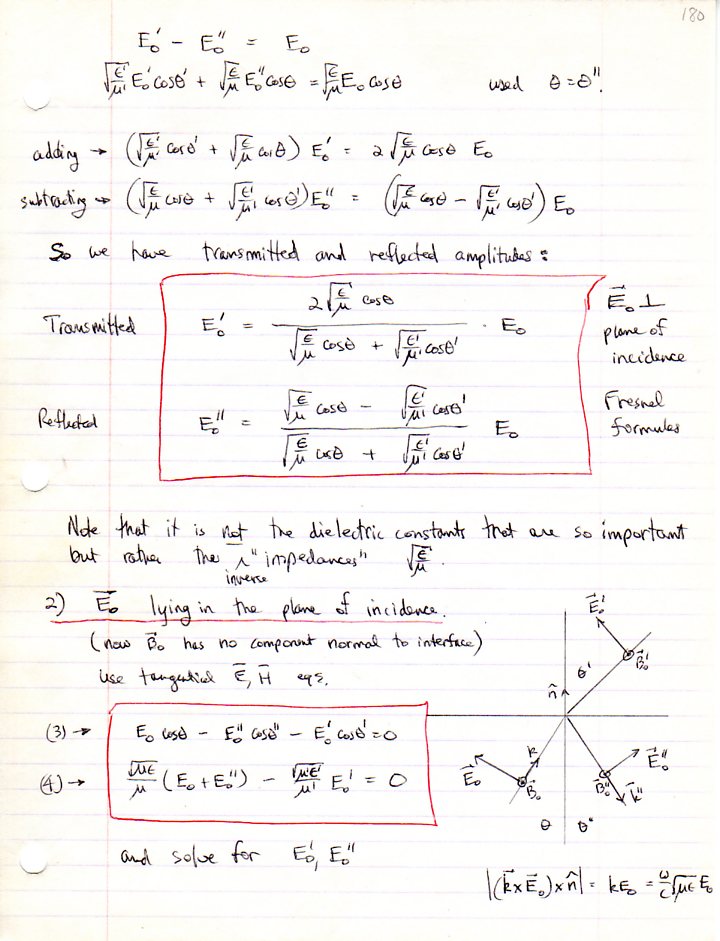 180
E₀′ − E₀″ = E₀
√(ϵ′/μ′) E₀′ cosθ′ + √(ϵ/μ) E₀″ cosθ = √(ϵ/μ) E₀ cosθ used θ = θ″.
adding → (√(ϵ′/μ′) cosθ′ + √(ϵ/μ) cosθ) E₀′ = 2√(ϵ/μ) cosθ E₀
subtracting → (√(ϵ/μ) cosθ + √(ϵ′/μ′) cosθ′) E₀″ = (√(ϵ/μ) cosθ − √(ϵ′/μ′) cosθ′) E₀
So we have transmitted and reflected amplitudes:
Transmitted E₀′ = 2√(ϵ/μ) cosθ / (√(ϵ/μ) cosθ + √(ϵ′/μ′) cosθ′) · E₀
E⃗₀ ⊥
plane of
incidence
Reflected E₀″ = (√(ϵ/μ) cosθ − √(ϵ′/μ′) cosθ′) / (√(ϵ/μ) cosθ + √(ϵ′/μ′) cosθ′) E₀
Fresnel
formulas
Note that it is not the dielectric constants that are so important
but rather the inverse "impedances" √(ϵ/μ).
2) E⃗₀ lying in the plane of incidence.
(now B⃗₀ has no component normal to interface)
use tangential E⃗, H⃗ eqs.
(3) → E₀ cosθ − E₀″ cosθ″ − E₀′ cosθ′ = 0
(4) → √(μϵ)/μ (E₀ + E₀″) − √(μ′ϵ′)/μ′ E₀′ = 0
and solve for E₀′, E₀″
E⃗₀′
B⃗₀′
θ′
n̂
k
E⃗₀
B⃗₀
E⃗₀″
B⃗₀″
k⃗″
θ
θ″
|(k⃗ x E⃗₀) x n̂| = kE₀ = ω/c √(μϵ) E₀